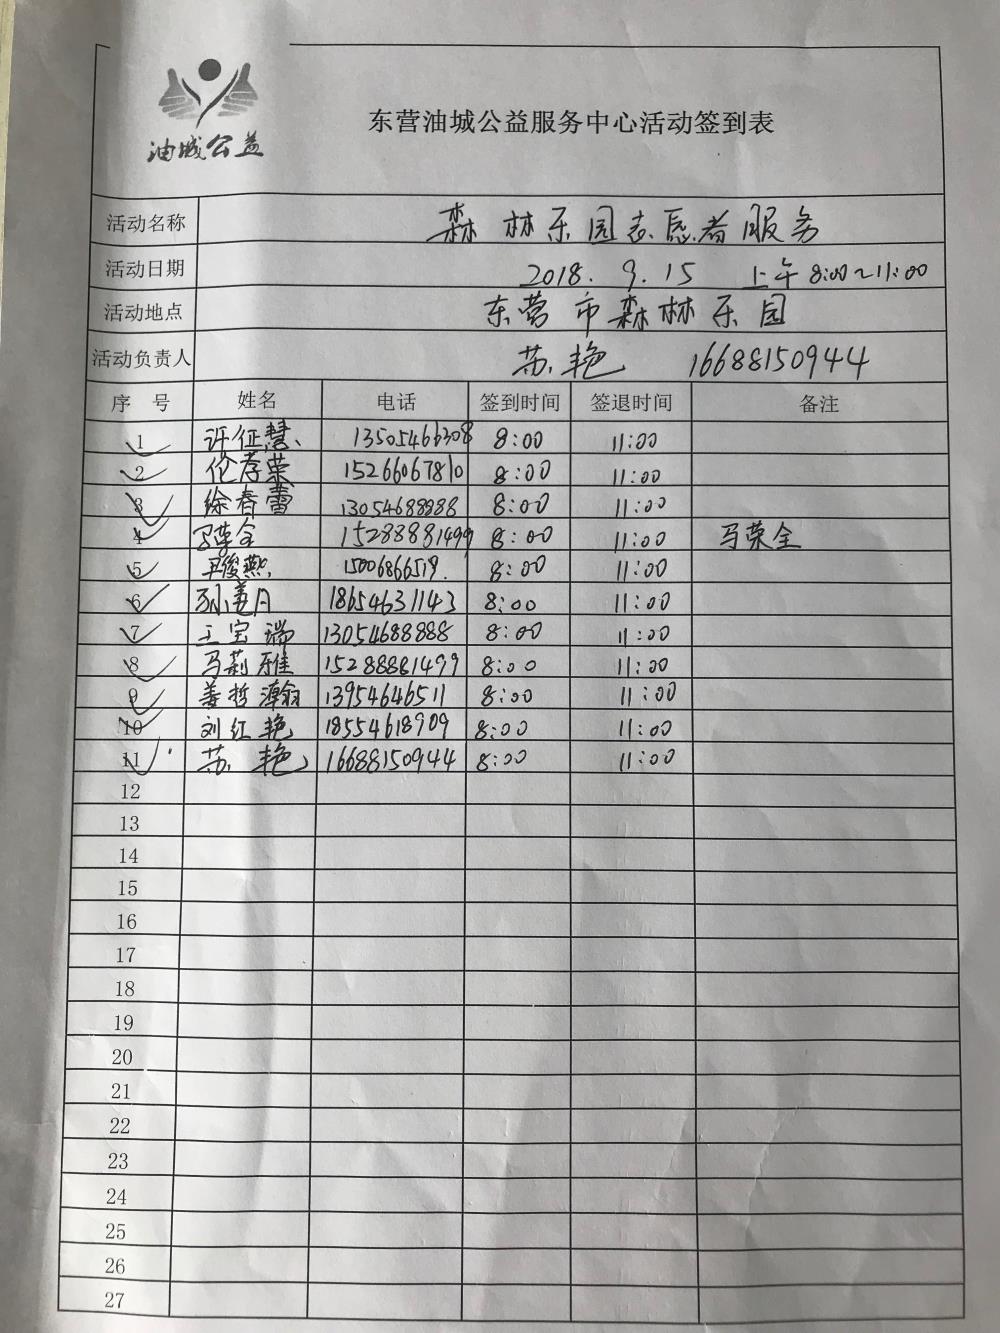 油城公益
东营油城公益服务中心活动签到表
活动名称 森林乐园志愿者服务
活动日期 2018.9.15 上午8:00~11:00
活动地点 东营市森林乐园
活动负责人 苏艳 16688150944
序号 姓名 电话 签到时间 签退时间 备注
1 许征慧 13505466308 8:00 11:00
2 伦存荣 15266067810 8:00 11:00
3 徐春蕾 13054688888 8:00 11:00
4 马荣全 15288881499 8:00 11:00 马荣全
5 俊燕 15006866519. 8:00 11:00
6 孙美月 18654631143 8:00 11:00
7 王宝瑞 13054688888 8:00 11:00
8 马莉雅 15288881499 8:00 11:00
9 姜哲瀚 13954646511 8:00 11:00
10 刘红艳 18554618909 8:00 11:00
11 苏艳 16688150944 8:00 11:00
12
13
14
15
16
17
18
19
20
21
22
23
24
25
26
27